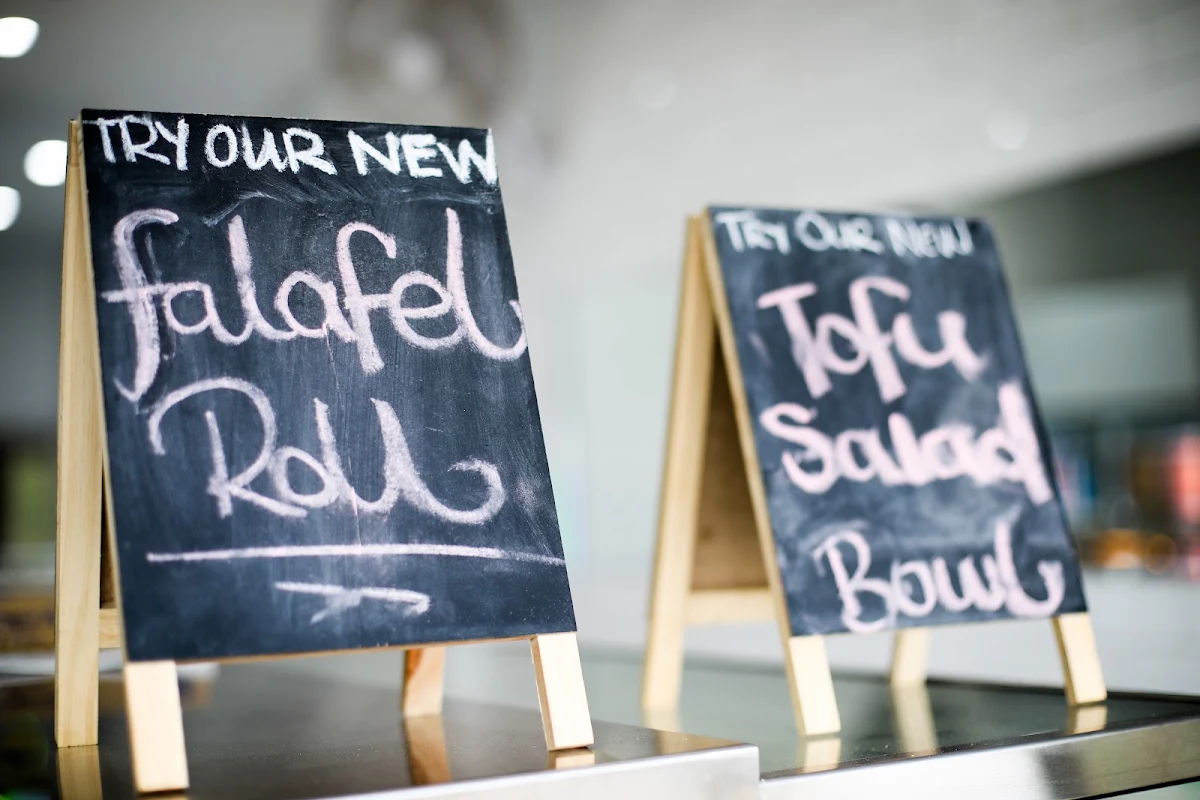 TRY OUR NEW
falafel
Roll
TRY OUR NEW
Tofu
Salad
Bowl